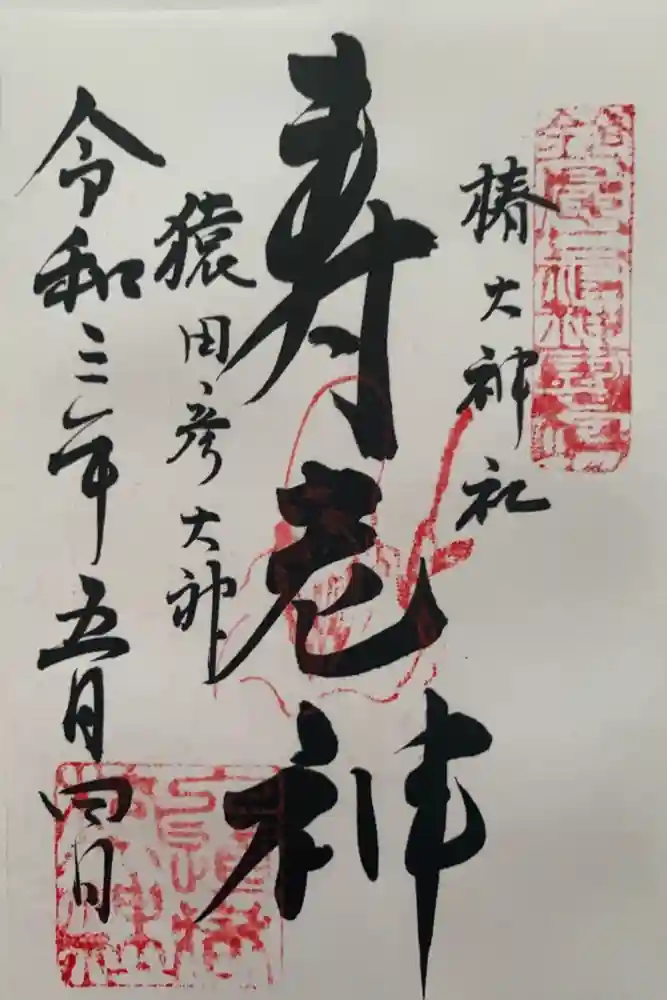 椿大神社
寿老神
猿田彦大神
令和三年五月四日